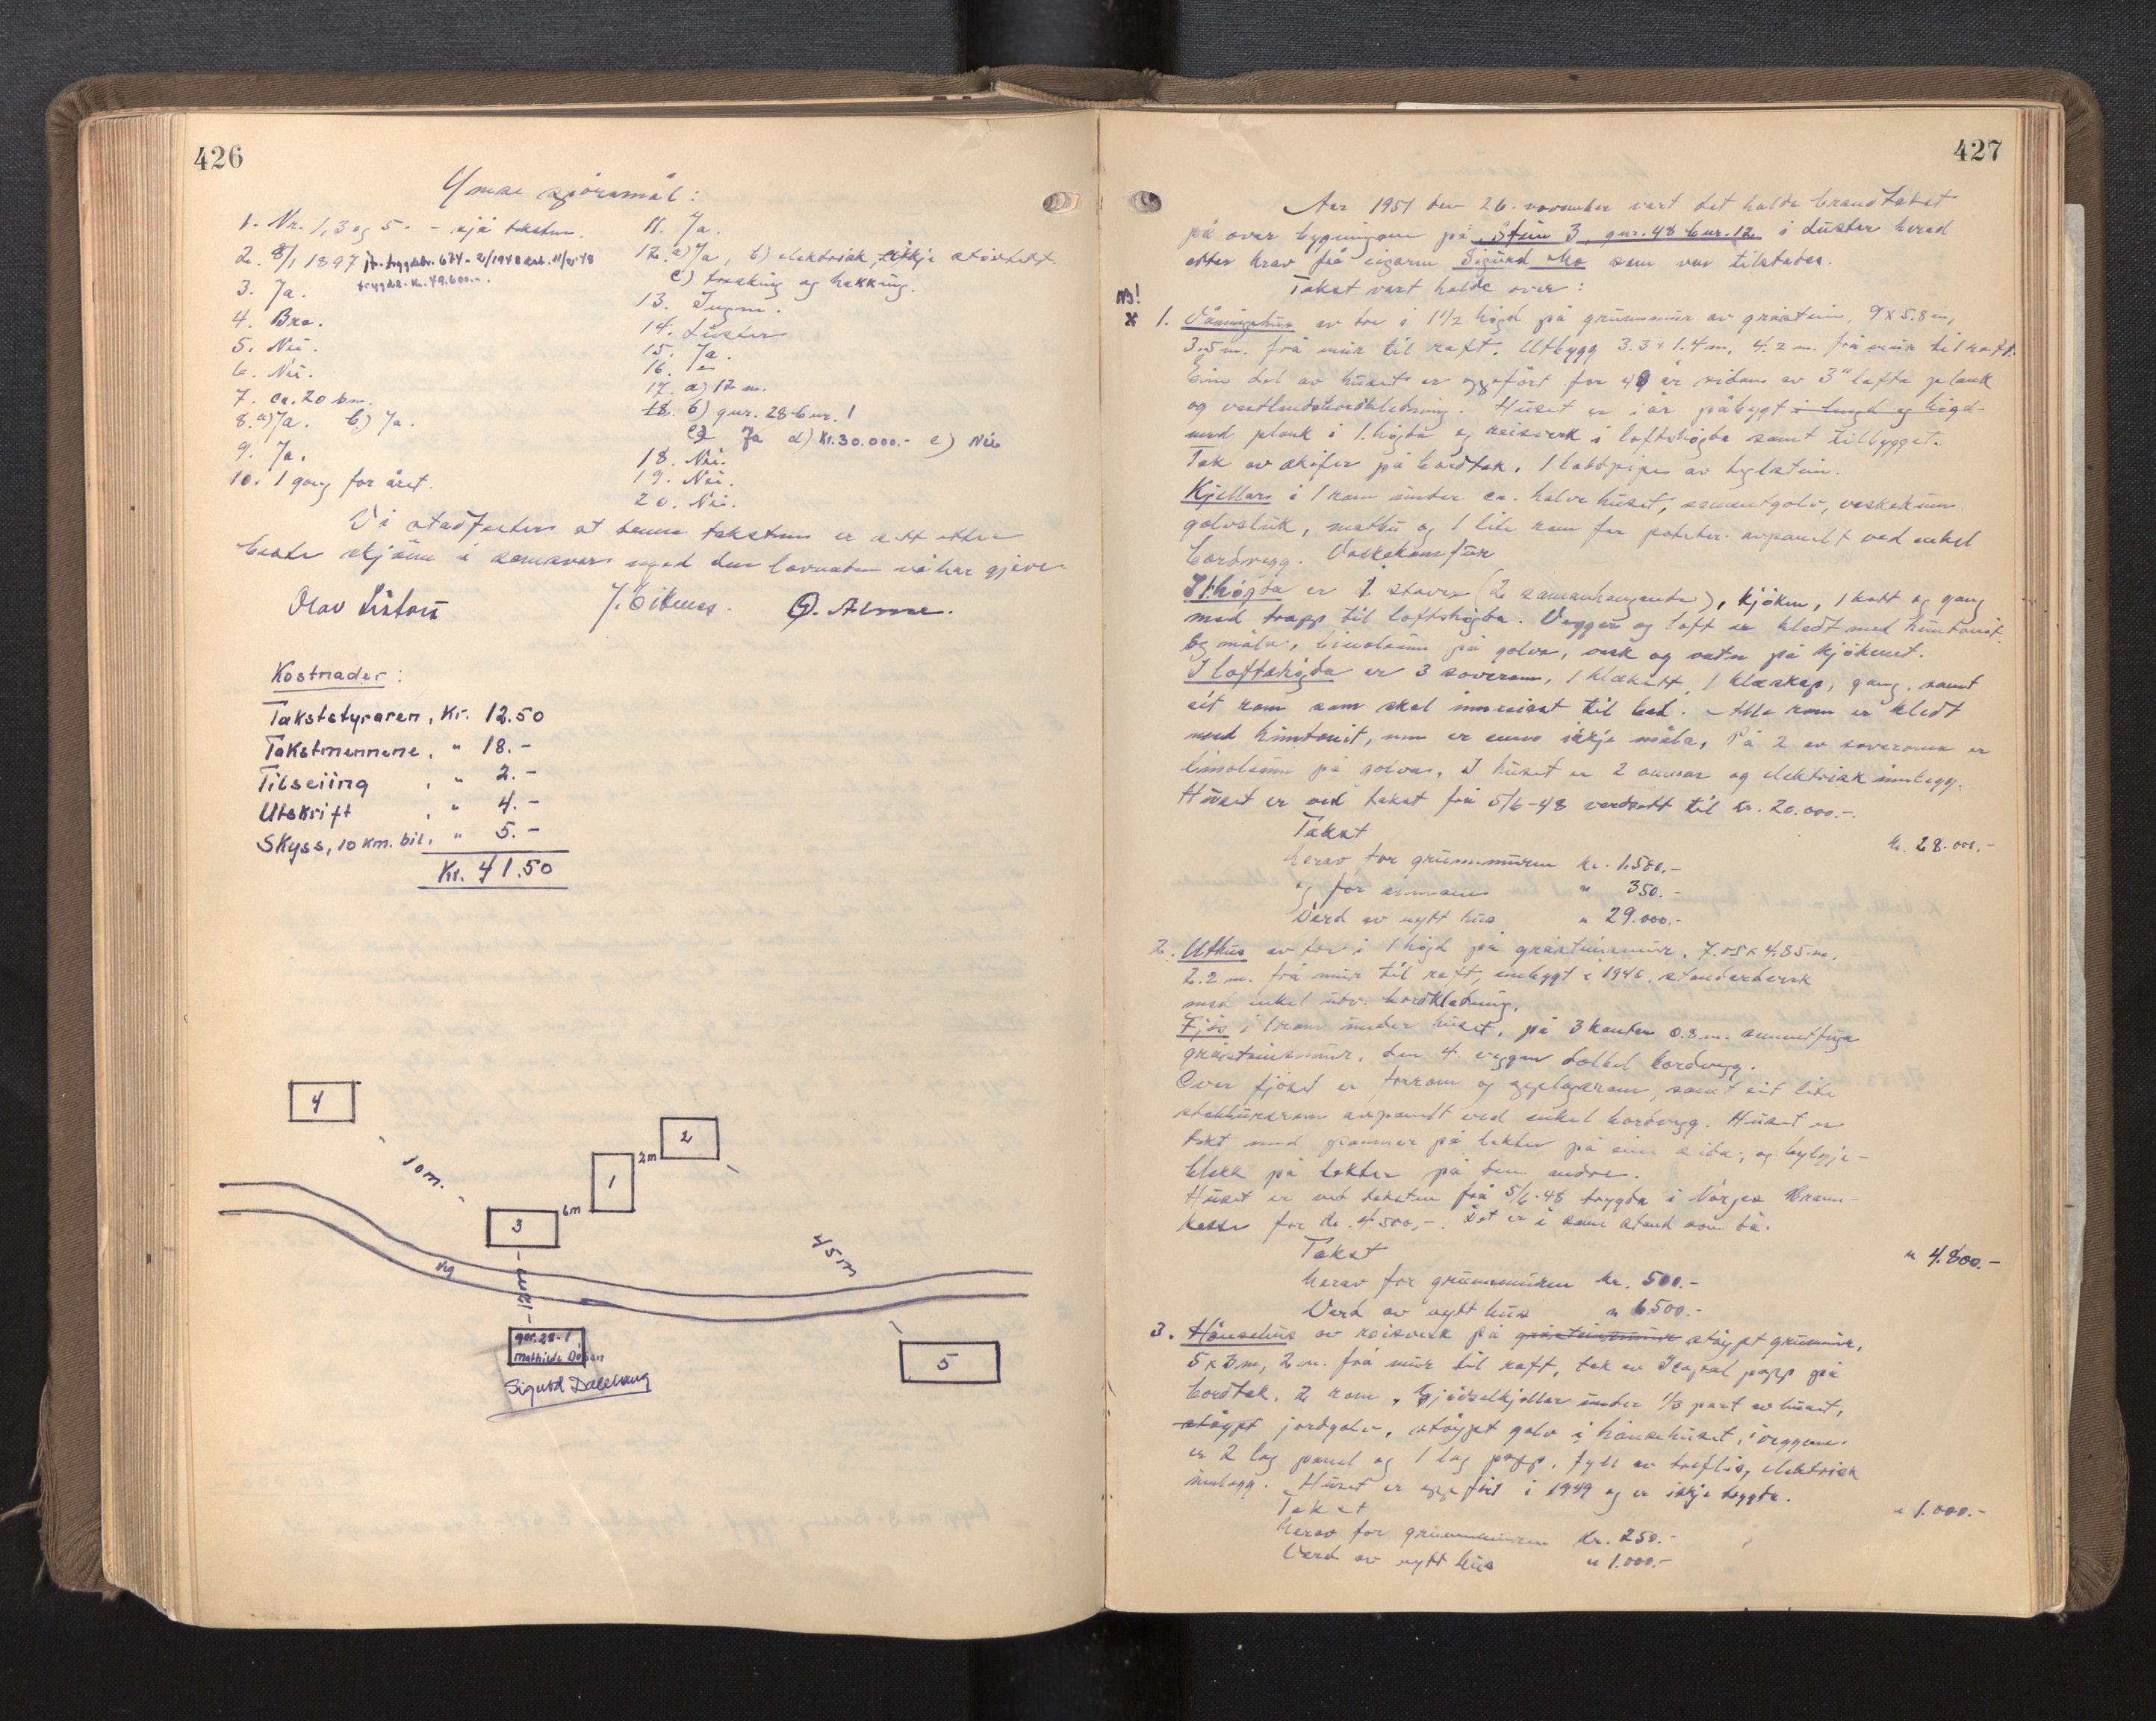 426
Ymse spörsmål:
1. Nr. 1, 3 og 5. - sjå taksten.
2. 8/1 1897 jfr. trygdebr. 674 - 2/1948 dat. 11/2-48
trygda kr. 49.600.-.
3. Ja.
4. Bra.
5. Nei.
6. Nei.
7. ca. 20 km.
8. a) Ja. b) Ja.
9. Ja.
10. 1 gong for året.
11. Ja.
12. a) Ja, b) elektrisk, ikkje støvtett
c) tresking og hakking.
13. Ingen.
14. Luster
15. Ja.
16.
17. a) 12 m.
18. b) gnr. 28 bnr. 1
c) Ja d) Kr. 30.000.- e) Nei
18. Nei.
19. Nei.
20. Nei.
Vi stadfester at denne taksten er sett etter
beste skjönn i samsvar med den lovnaden vi har gjeve.
Olav J. O. Alme.
Kostnader:
Takststyraren, Kr. 12.50
Takstmennene, " 18.-
Tilseiing, " 2.-
Utskrift, " 4.-
Skyss, 10 km. bil, " 5.-
Kr. 41.50
4
2
2m
1
10 m.
3
6m
45 m
Veg
12 m
gnr. 28-1
Mathilde
5
Sigurd
427
Aar 1951 den 26. november vart det halde branntakst
på over bygningane på Stein 3, gnr. 48 bnr. 12 i Luster herad
etter krav frå eigaren Sigurd Mo som var tilstades.
Takst vart halde over:
NB!
x 1. Våningshus av tre i 1 1/2 högd på grunnmur av gråstein, 9 x 5.8 m,
3.5 m. frå mur til raft. Utbygg 3.3 x 1.4 m, 4.2 m. frå mur til raft.
Ein del av huset er oppfört for 40 år sidan av 3" lafta plank
og vestlandsbordkledning. Huset er i år påbygt i lengd og högd
med plank i 1. högda og reisverk i loftshögda samt tilbygget.
Tak av skifer på bordtak. 1 labdpipe av teglstein.
Kjellar i 1 rom under ca. halve huset, sementgolv, vaskekum
golvsluk, matbu og 1 lite rom for poteter avpanelt ved enkel
bordvegg.
I 1. högda er 2 stover (2 samanhangande), kjöken, 1 kott og gang
med trapp til loftshögda. Vegger og loft er kledt med huntonit
og måla, linoleum på golva, vask og vatn på kjökenet.
I loftshögda er 3 soverom, 1 klekott, 1 kleskap, gang, samt
eit rom som skal innreiast til bad. Alle rom er kledt
med huntonit, men er enno ikkje måla, På 2 av soveroma er
linoleum på golva. I huset er 2 omnar og elektrisk innlegg.
Huset er ved takst frå 5/6-48 verdsett til kr. 20.000.-.
Takst kr. 28.000.-
herav for grunnmuren kr. 1.500.-
og for omnane " 350.-
Verd av nytt hus " 29.000.-
2. Uthus av tre i 1 högd på gråsteinsmur, 7.05 x 4.85 m.
2.2 m. frå mur til raft, ombygt i 1946, standerverk
med enkel utv. bordkledning.
Fjös i 1 rom under huset, på 3 kanter 0.8 m. sementfuga
gråsteinsmur, den 4. veggen dobbel bordvegg.
Over fjöset er forrom og opplagsrom, samt eit lite
stabbursrom avpanelt ved enkel bordvegg. Huset er
tekt med panner på lekter på eine sida, og bylgje-
blekk på lekter på den andre.
Huset er ved taksten frå 5/6-48 trygda i Norges Brann-
kasse for kr. 4.500,-. Det er i same stand som då.
Takst " 4.800.-
herav for grunnmuren kr. 500.-
Verd av nytt hus " 6500.-
3. Hönsehus av reisverk på gråsteinsmur stöypt grunmur,
5 x 3 m, 2 m. frå mur til raft, tak av papp på
bordtak. 2 rom. Gjödselkjellar under 1/3 part av huset,
stöypt jordgolv, stöypt golv i hönsehuset, i veggene
er 2 lag panel og 1 lag papp, fyll av treflis, elektrisk
innlegg. Huset er oppfört i 1949 og er ikkje trygda.
Takst " 1.000.-
herav for grunnmuren kr. 250.-
Verd av nytt hus " 1.000.-